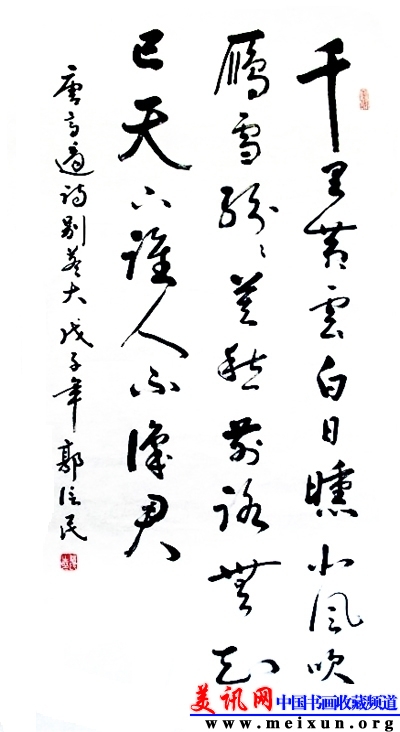 千里黄雲白日曛北風吹
鴈雪紛〻莫愁前路無知
己天下誰人不識君
唐高適詩別董大 戊子年 郭
美讯网 中国书画收藏频道
www.meixun.org